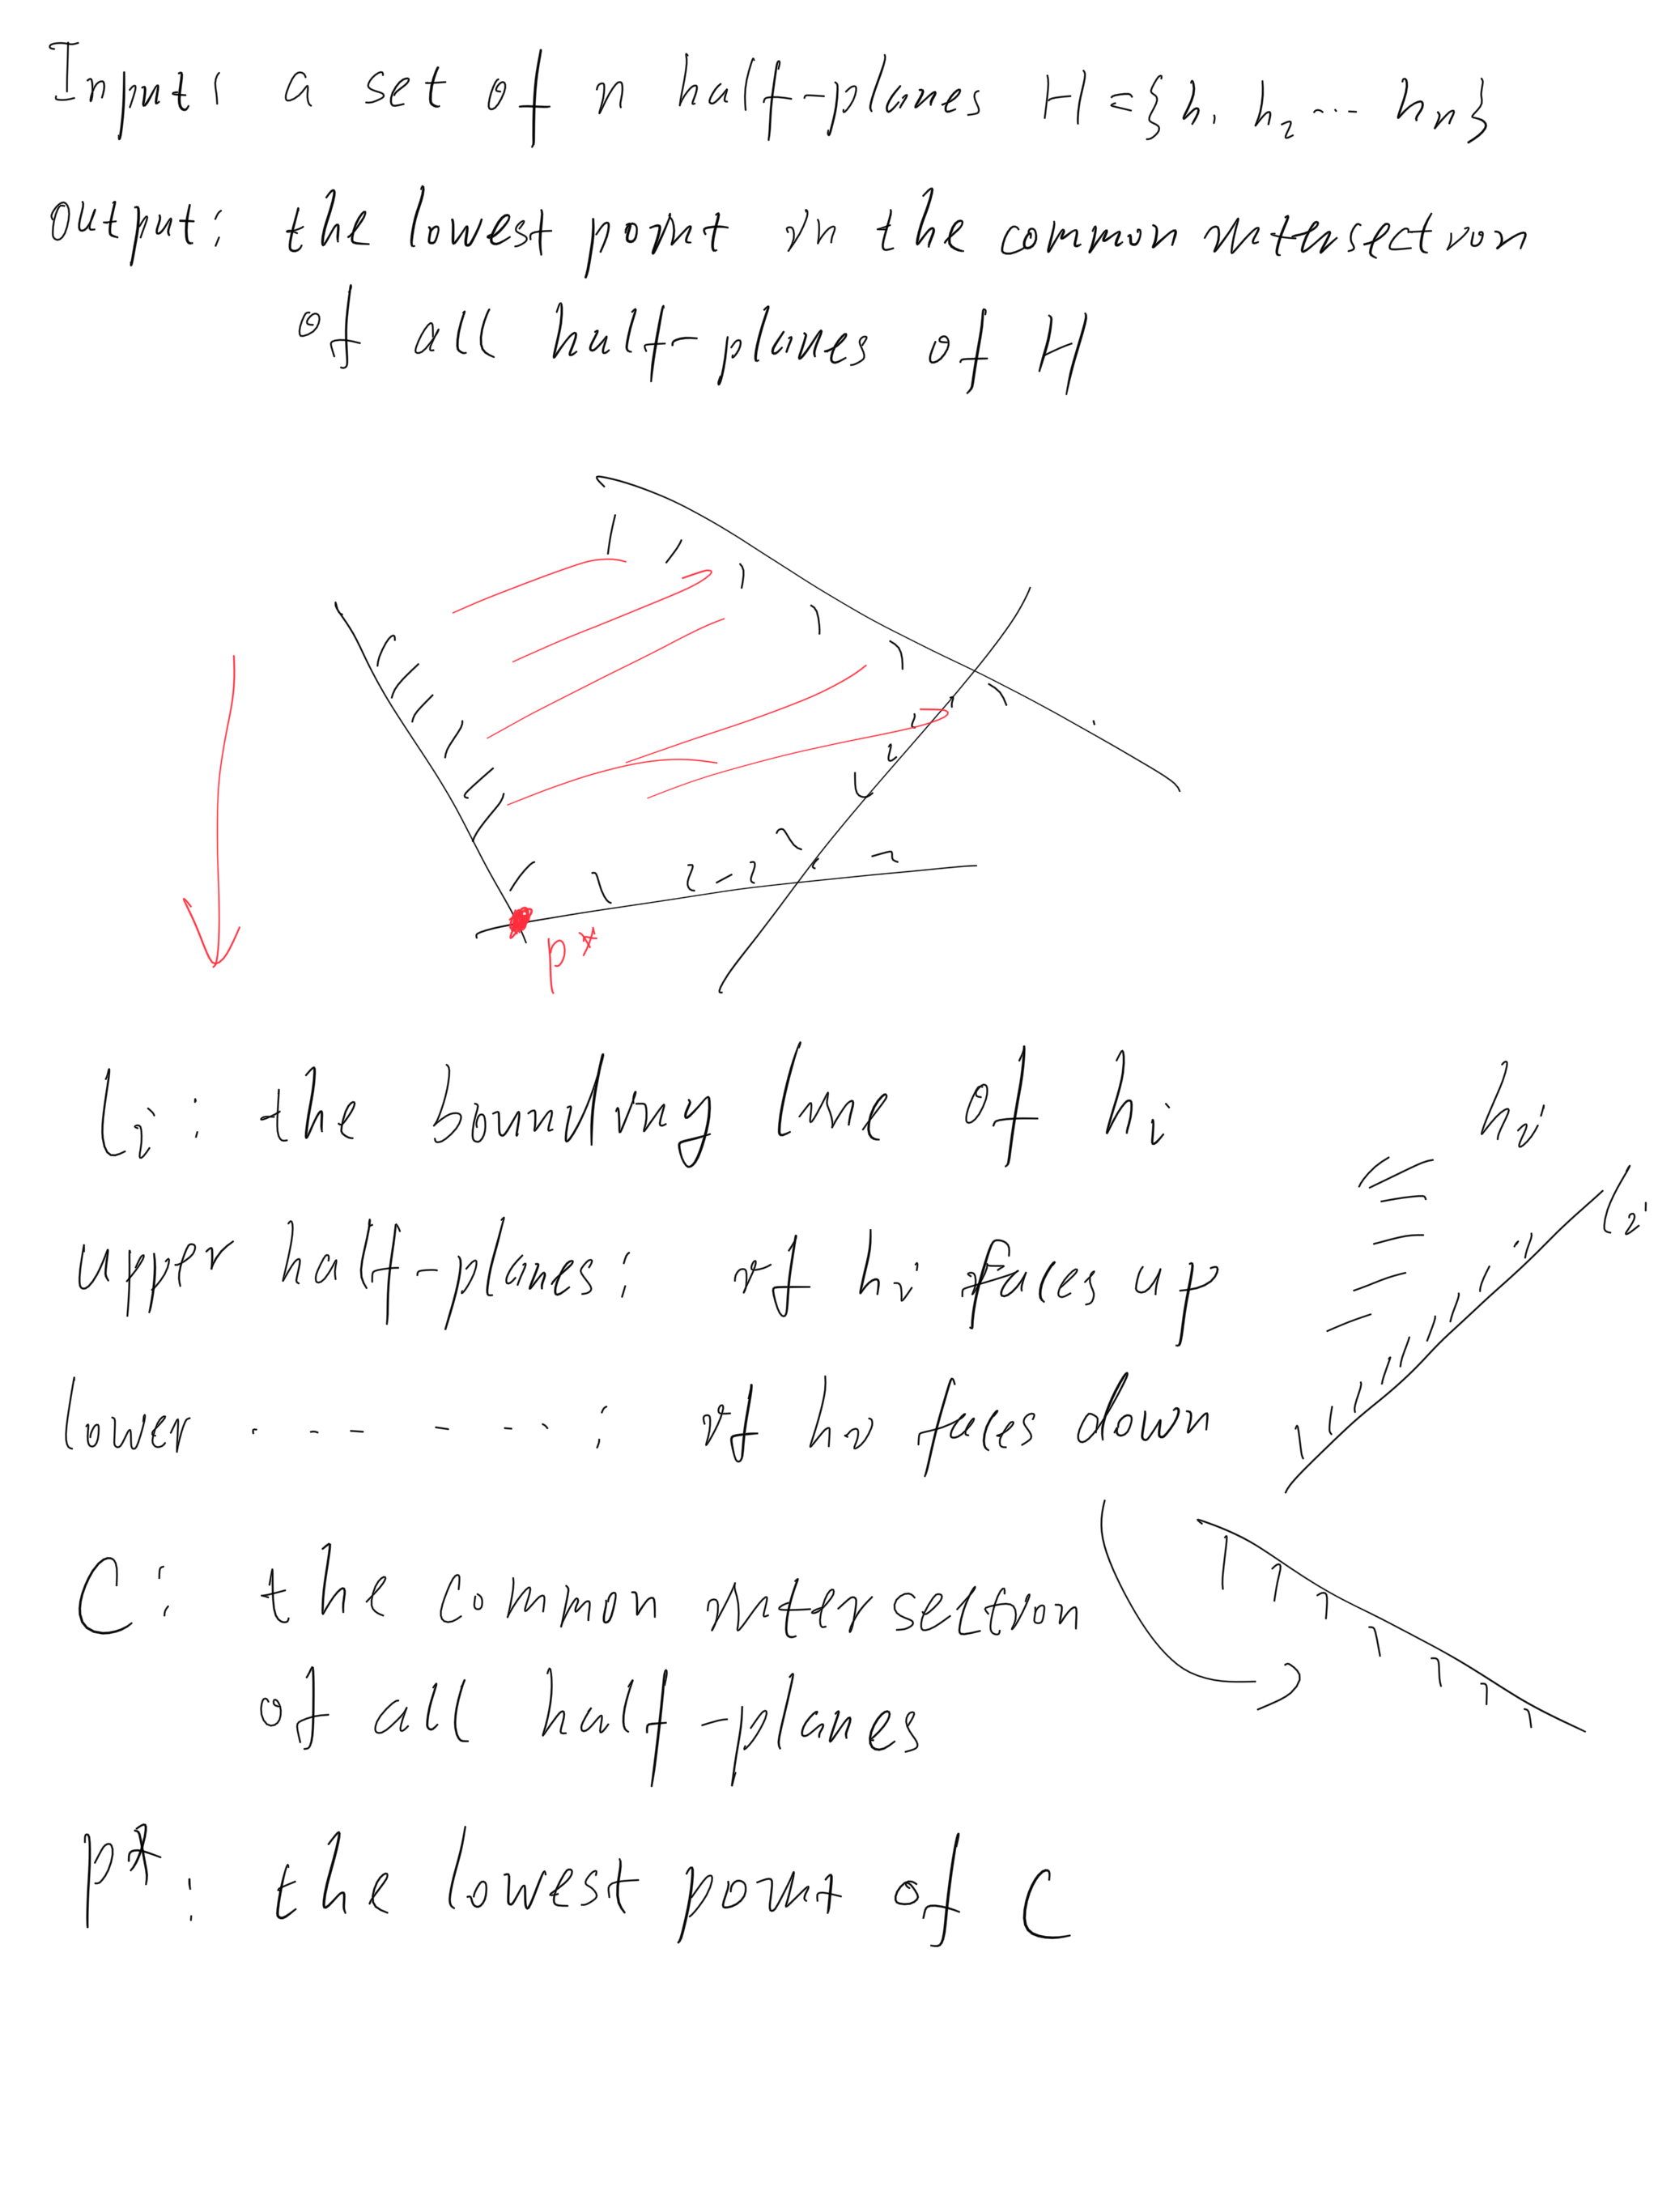 Input: a set of n half-planes H = {h₁ h₂ ... hₙ}
output: the lowest point in the common intersection
of all half-planes of H
p*
lᵢ: the bounding line of hᵢ
hᵢ
lᵢ
upper half-planes: if hᵢ faces up
lower - - - - - : if hᵢ faces down
C: the common intersection
of all half-planes
p*: the lowest point of C